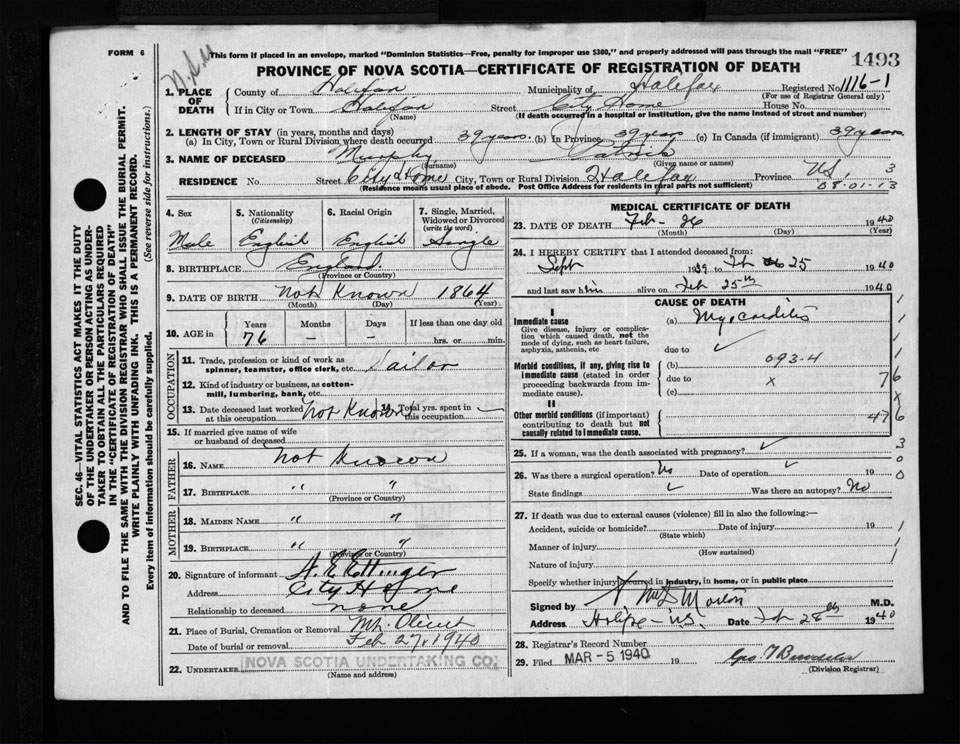 FORM 6
N.S.
This form if placed in an envelope, marked "Dominion Statistics—Free, penalty for improper use $300," and properly addressed will pass through the mail "FREE"
1493
PROVINCE OF NOVA SCOTIA—CERTIFICATE OF REGISTRATION OF DEATH
1. PLACE OF DEATH County of Halifax Municipality of Halifax Registered No. 1116-1
(For use of Registrar General only)
If in City or Town Halifax Street City Home House No.
(Name) (If death occurred in a hospital or institution, give the name instead of street and number)
2. LENGTH OF STAY (in years, months and days)
(a) In City, Town or Rural Division where death occurred 39 years. (b) In Province 39 years (c) In Canada (if immigrant) 39 years.
3. NAME OF DECEASED Murphy, Patrick
(Surname) (Given name or names)
RESIDENCE No. Street City Home City, Town or Rural Division Halifax Province N.S. 3
(Residence means usual place of abode. Post Office Address for residents in rural parts not sufficient) 08-01-13
SEC. 46—VITAL STATISTICS ACT MAKES IT THE DUTY
OF THE UNDERTAKER OR PERSON ACTING AS UNDER-
TAKER TO OBTAIN ALL THE PARTICULARS REQUIRED
IN THE "CERTIFICATE OF REGISTRATION OF DEATH"
AND TO FILE THE SAME WITH THE DIVISION REGISTRAR WHO SHALL ISSUE THE BURIAL PERMIT.
WRITE PLAINLY WITH UNFADING INK. THIS IS A PERMANENT RECORD.
Every item of information should be carefully supplied. (See reverse side for instructions.)
4. Sex 5. Nationality (Citizenship) 6. Racial Origin 7. Single, Married, Widowed or Divorced (write the word)
Male English English Single
8. BIRTHPLACE England
(Province or Country)
9. DATE OF BIRTH Not Known 1864
(Month) (Day) (Year)
10. AGE in Years Months Days If less than one day old
76 — — hrs. or min.
OCCUPATION
11. Trade, profession or kind of work as spinner, teamster, office clerk, etc. Tailor
12. Kind of industry or business, as cotton-mill, lumbering, bank, etc.
13. Date deceased last worked at this occupation Not Known 14. Total yrs. spent in this occupation —
15. If married give name of wife or husband of deceased
FATHER
16. NAME Not Known
17. BIRTHPLACE " "
(Province or Country)
MOTHER
18. MAIDEN NAME " "
19. BIRTHPLACE " "
(Province or Country)
20. Signature of informant A. E. Ettinger
Address City Home
Relationship to deceased none
21. Place of Burial, Cremation or Removal Mt. Olivet
Date of burial or removal Feb 27, 1940
22. UNDERTAKER NOVA SCOTIA UNDERTAKING CO.
(Name and address)
MEDICAL CERTIFICATE OF DEATH
23. DATE OF DEATH Feb - 26 1940
(Month) (Day) (Year)
24. I HEREBY CERTIFY that I attended deceased from:
Sept 1939 to Feb 25 1940
and last saw him alive on Feb 25th 1940
CAUSE OF DEATH
I
Immediate cause
Give disease, injury or complication which caused death, not the mode of dying, such as heart failure, asphyxia, asthenia, etc
(a) Myocarditis
due to
Morbid conditions, if any, giving rise to immediate cause (stated in order proceeding backwards from immediate cause).
(b) 093-4
due to x
(c)
76
II
Other morbid conditions (if important) contributing to death but not causally related to immediate cause.
476
25. If a woman, was the death associated with pregnancy?
26. Was there a surgical operation? No Date of operation 19
State findings Was there an autopsy? No
27. If death was due to external causes (violence) fill in also the following:—
Accident, suicide or homicide? Date of injury 19
(State which)
Manner of injury
(How sustained)
Nature of injury
Specify whether injury occurred in industry, in home, or in public place
Signed by Morton M.D.
Address Halifax - N.S. Date Feb 28th 1940
28. Registrar's Record Number
29. Filed MAR -5 1940 19
(Division Registrar)